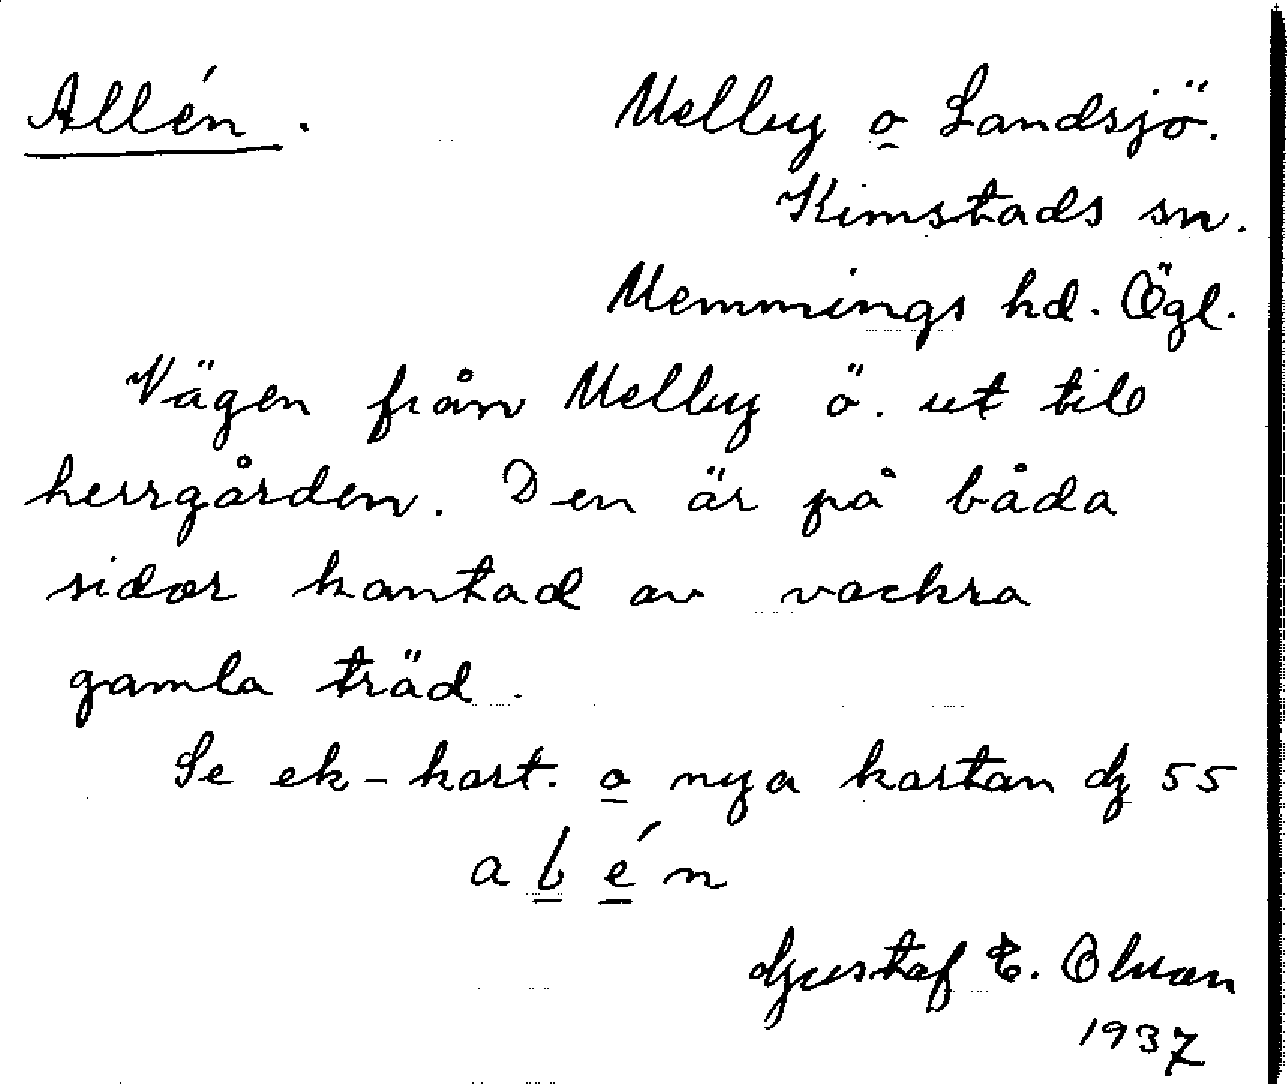 Allén. Melby o Landsjö.
Kimstads sn.
Memmings hd. Ögl.
Vägen från Melby ö. ut till
herrgården. Den är på båda
sidor kantad av vackra
gamla träd.
Se ek-kart. o nya kartan dz 55
a l é n
Gustaf E. Olsson
1937